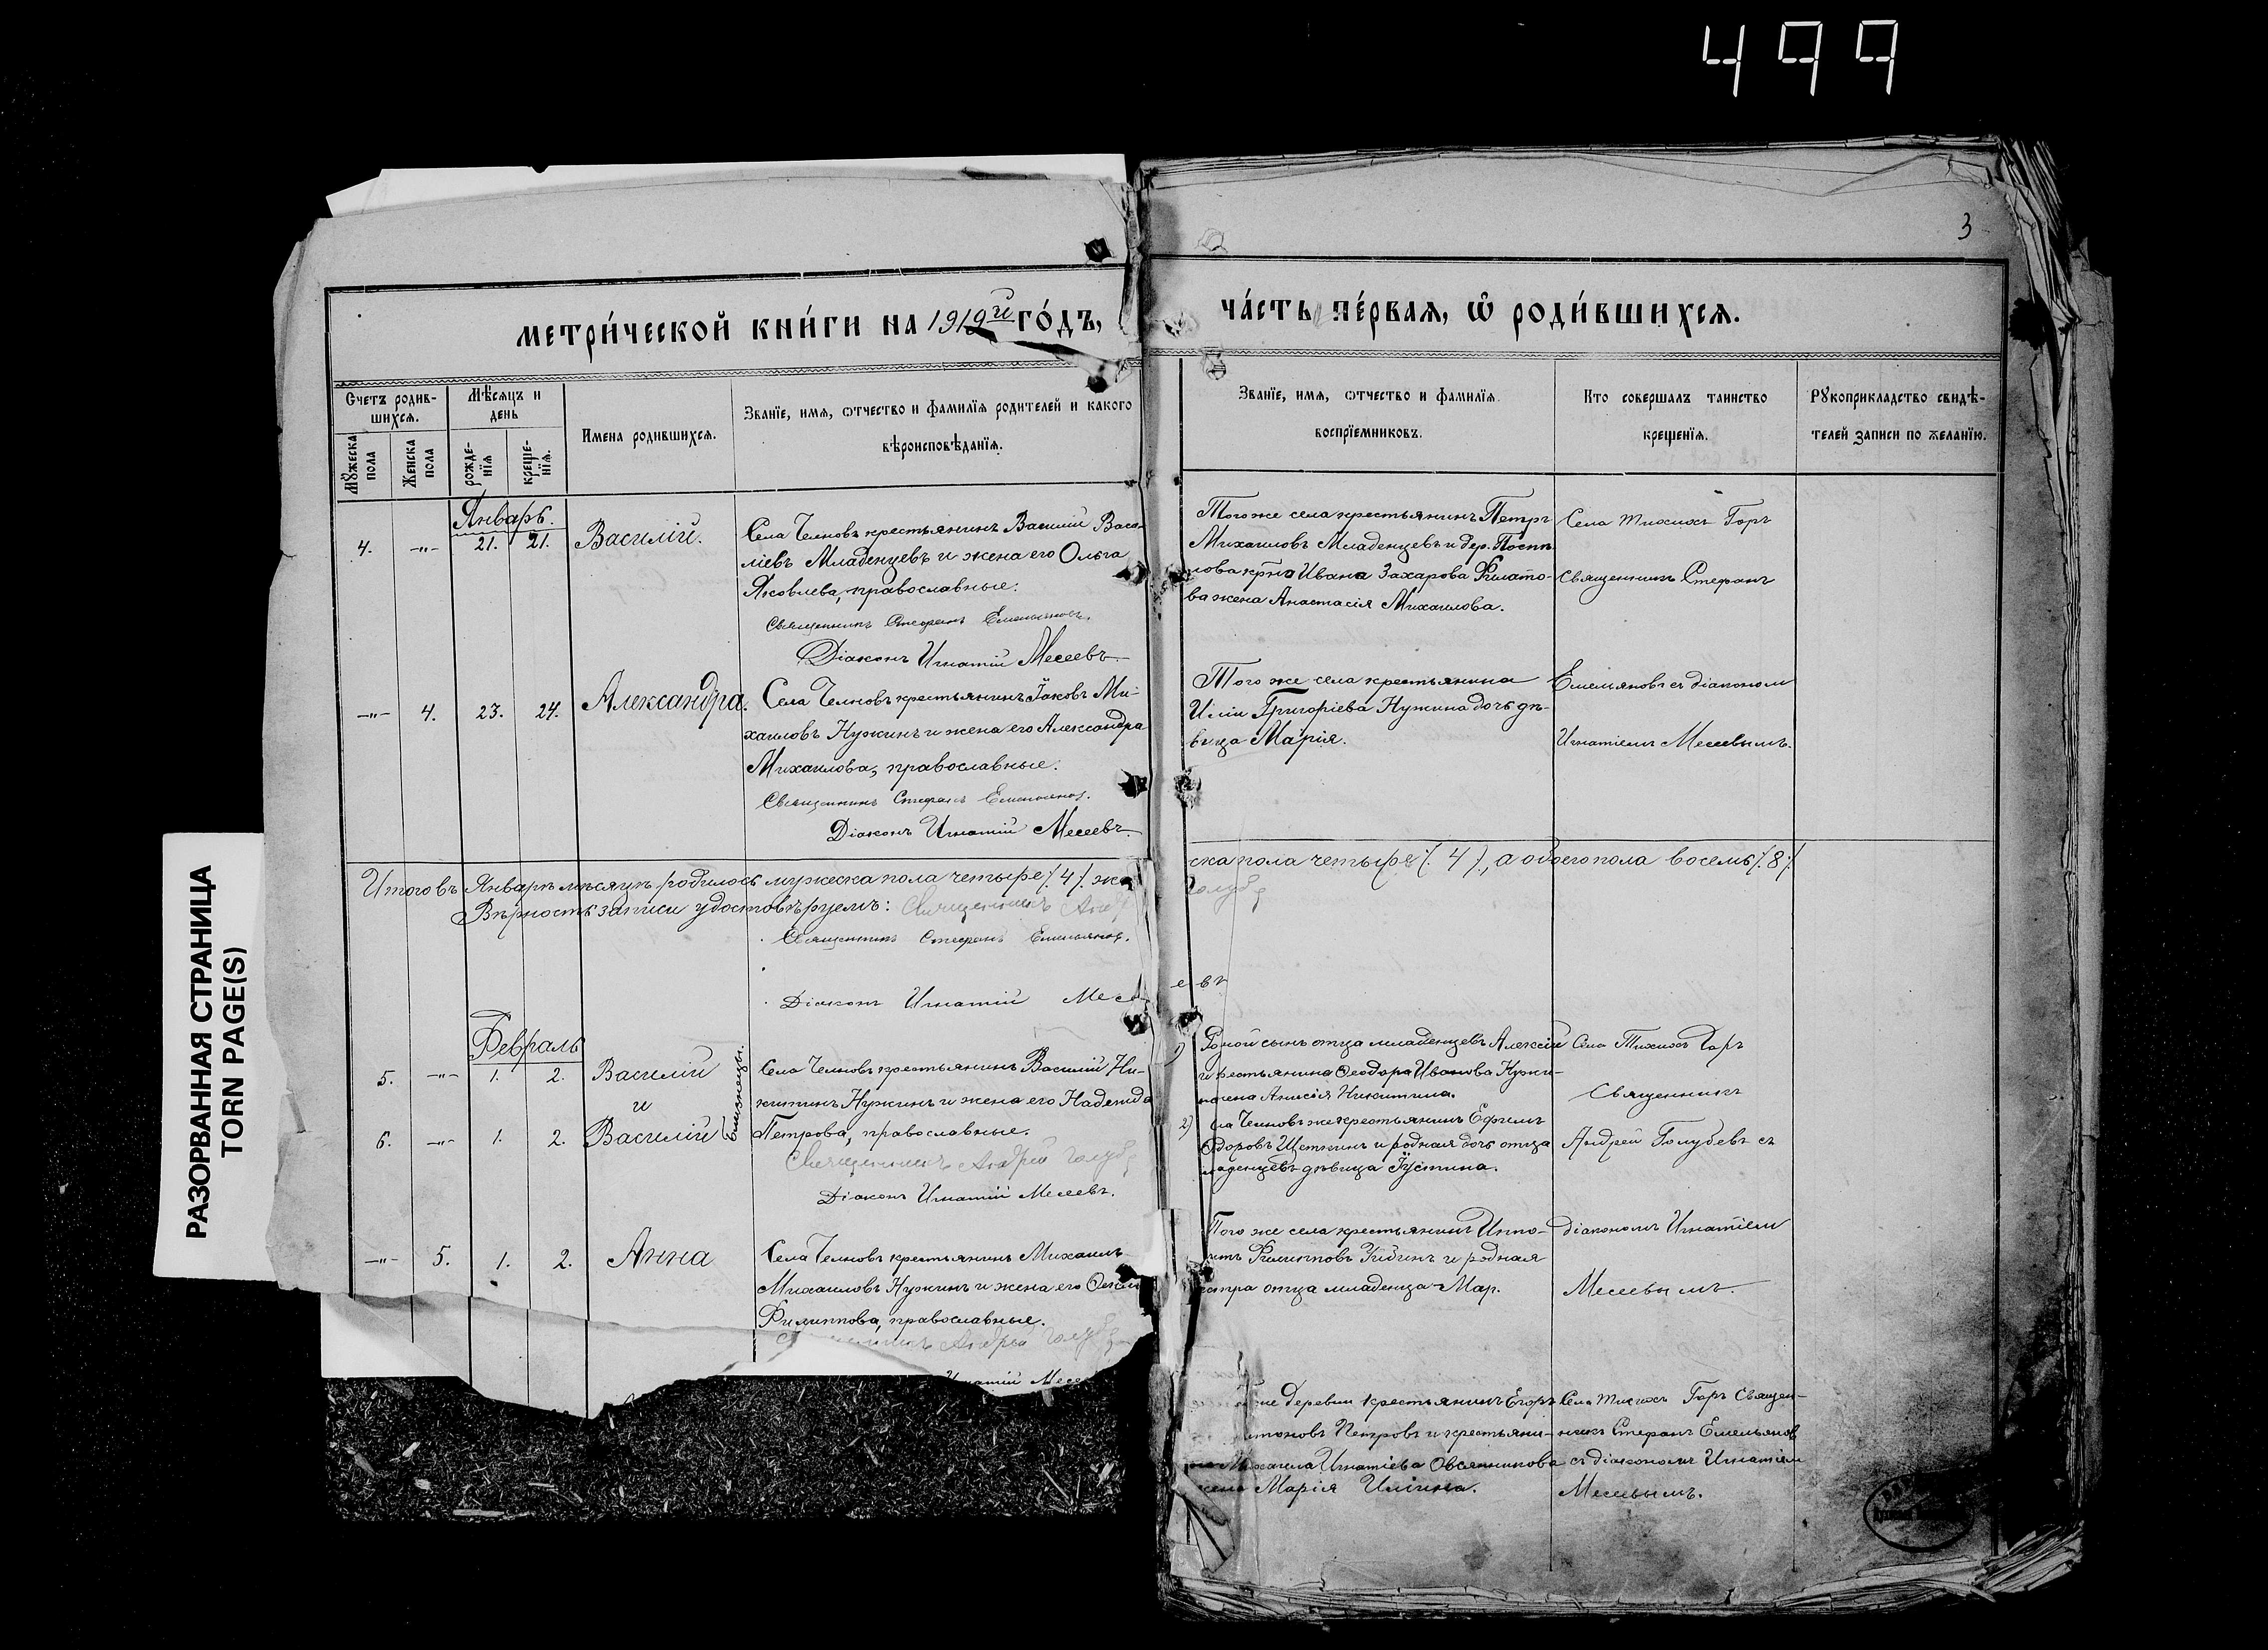 499
3
МЕТРИ́ЧЕСКОЙ КНИ́ГИ НА 1919й ГО́ДЪ,
ЧА́СТЬ ПЕ́РВАЯ, Ѽ РОДИ́ВШИХСЯ.
Счетъ родив-
шихся.
Мѣсяцъ и
день
Имена родившихся.
Званїе, имя, ѿтчество и фамилїя родителей и какого
вѣроисповѣданїя.
Мꙋжеска
пола
Женска
пола
рожде-
нїя
креще-
нїя.
Званїе, имя, ѿтчество и фамилїя
воспрїемниковъ.
Кто совершалъ таинство
крещенїя.
Рꙋкоприкладство свидѣ-
телей записи по желанїю.
Январь.
4. -"- 21. 21. Василій.
Села Челновъ крестьянинъ Василій Васи-
ліевъ Младенцевъ и жена его Ольга
Яковлева, православные.
Священникъ Стефанъ Емельяновъ.
Діаконъ Игнатій Месеевъ.
Того же села крестьянинъ Петръ
Михаиловъ Младенцевъ и дер.
Ивана Захарова Филато-
ва жена Анастасія Михаилова.
Села Тихихъ Горъ
Священникъ Стефанъ
-"- 4. 23. 24. Александра.
Села Челновъ крестьянинъ Іаковъ Ми-
хаиловъ Нужинъ и жена его Александра
Михаилова, православные.
Священникъ Стефанъ Емельяновъ.
Діаконъ Игнатій Месеевъ.
Того же села крестьянина
Иліи Григоріева Нужина дочь дѣ-
вица Марія.
Емельяновъ съ діакономъ
Игнатіемъ Месеевымъ.
Итого въ Январѣ мѣсяцѣ родилось мужеска пола четыре /.4/. же
ска пола четыре /.4/., а обоего пола восемь /.8./
Вѣрность записи удостовѣряемъ: Священникъ Андр
Голубе
Священникъ Стефанъ Емельяновъ.
Діаконъ Игнатій Месе
евъ
Февраль
5. -"- 1. 2. Василій
и
6. -"- 1. 2. Василій
близнецы.
Села Челновъ крестьянинъ Василій Ни-
китинъ Нужинъ и жена его Надежда
Петрова, православные.
Священникъ Андрей Голубе
Діаконъ Игнатій Месеевъ.
1) Родной сынъ отца младенцевъ Алексій
и крестьянина Ѳеодора Иванова Нужи-
жена Анисія Никитина.
2) ла Челновъ же крестьянинъ Ефимъ
Ѳдоровъ Щеткинъ и родная дочь отца
младенцевъ дѣвица Іустина.
Села Тихихъ Горъ
Священникъ
Андрей Голубевъ съ
-"- 5. 1. 2. Анна
Села Челновъ крестьянинъ Михаилъ
Михаиловъ Нужинъ и жена его Ѳекла
Филиппова, православные.
Андрей Голубе
Игнатій Месе
Того же села крестьянинъ Иппо-
литъ Филипповъ и родная
сестра отца младенца Мар.
діакономъ Игнатіемъ
Месеевымъ.
же деревни крестьянинъ Егоръ
Антоновъ Петровъ и крестьяни-
на Михаила Игнатіева Овсянникова
жена Марія Иліина.
Села Тихихъ Горъ Священ-
никъ Стефанъ Емельяновъ
съ діакономъ Игнатіем
Месеевымъ.
РАЗОРВАННАЯ СТРАНИЦА
TORN PAGE(S)